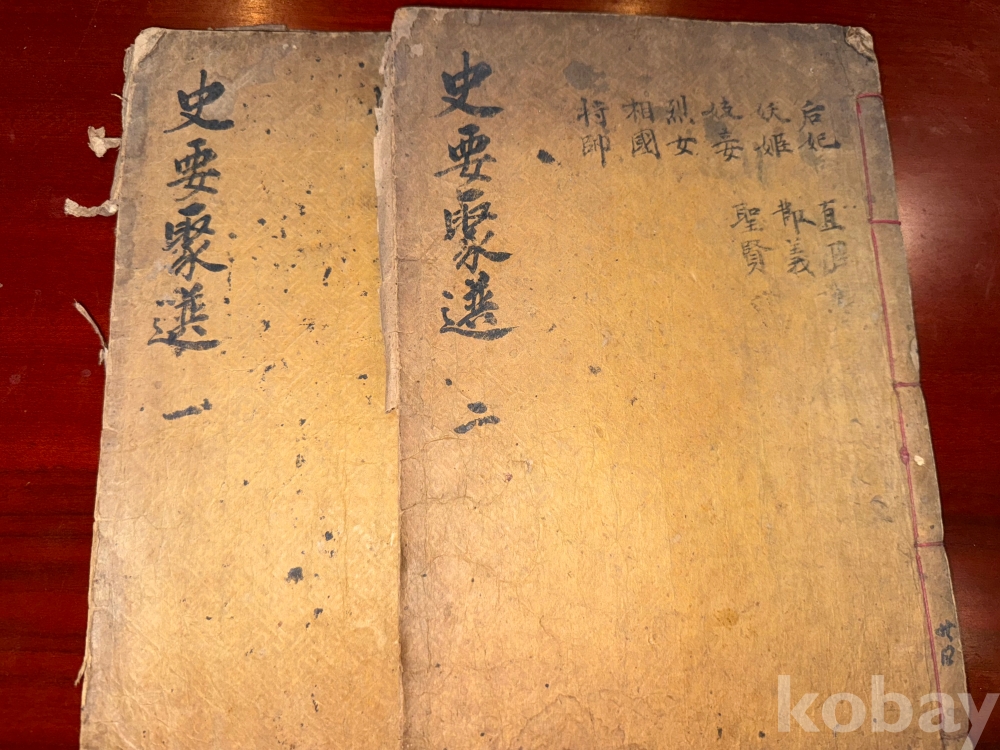 史要聚選 一
史要聚選 二
后妃
妖姬
妓妾
烈女
相國
將帥
直臣
散義
聖賢
kobay